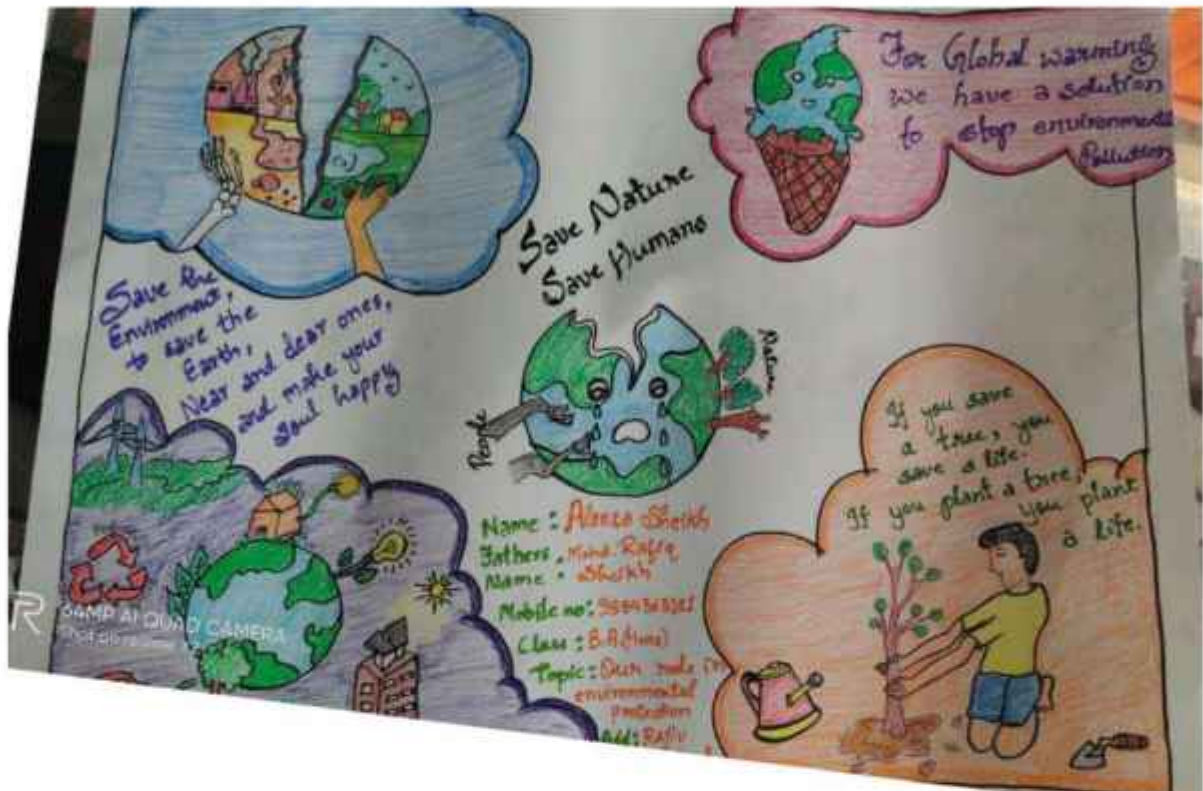 For Global warming
we have a solution
to stop environmental
Pollution
Save Nature
Save Humans
Save the
Environment,
to save the
Earth,
Near and dear ones,
and make your
soul happy
People
Nature
If you save
a tree, you
save a life.
If you plant a tree,
you plant
a life.
Name: Sheikh
Fathers Mohd. Rafiq
Name: Sheikh
Mobile no:
Class: B.A (Hons)
Topic: Our role in
environmental
protection
Add:
64MP AI QUAD CAMERA
Shot on